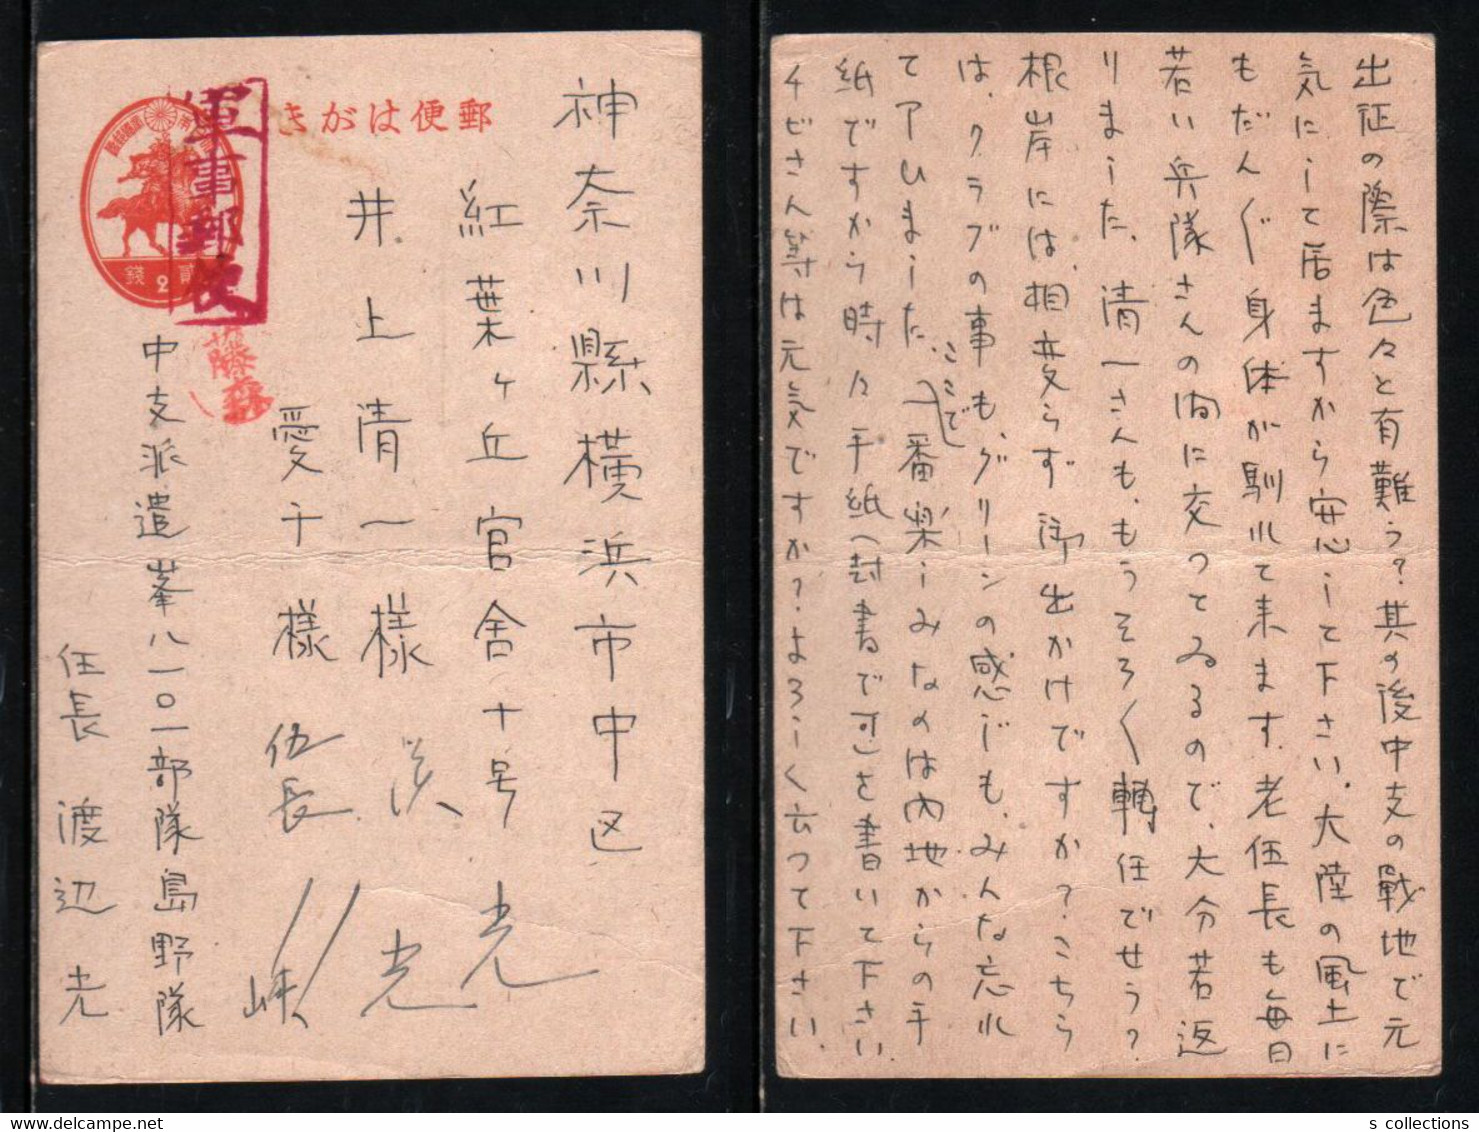 郵便はがき
軍事郵便
2
錢
藤森
神奈川縣横浜市中区
紅葉ヶ丘官舎十号
井上清一様
愛子様
伍長
光
光
中支派遣峯八一〇一部隊島野隊
伍長 渡辺光
出征の際は色々と有難う?其の後中支の戰地で元
気にして居ますから安心して下さい。大陸の風土に
もだんだん身体が馴れて来ます。老伍長も毎日
若い兵隊さんの内に交つてゐるので、大分若返
りました、清一さんも、もうそろく轉任でせう?
根岸には、相変らず御出かけですか?こちら
は、クラブの事も、グリーンの感じも、みんな忘れ
てアひました、ここで一番楽しみなのは内地からの手
紙ですから時々手紙(封書で可)を書いて下さい
チビさん等は元気ですか?よろしく云つて下さい、
s collections